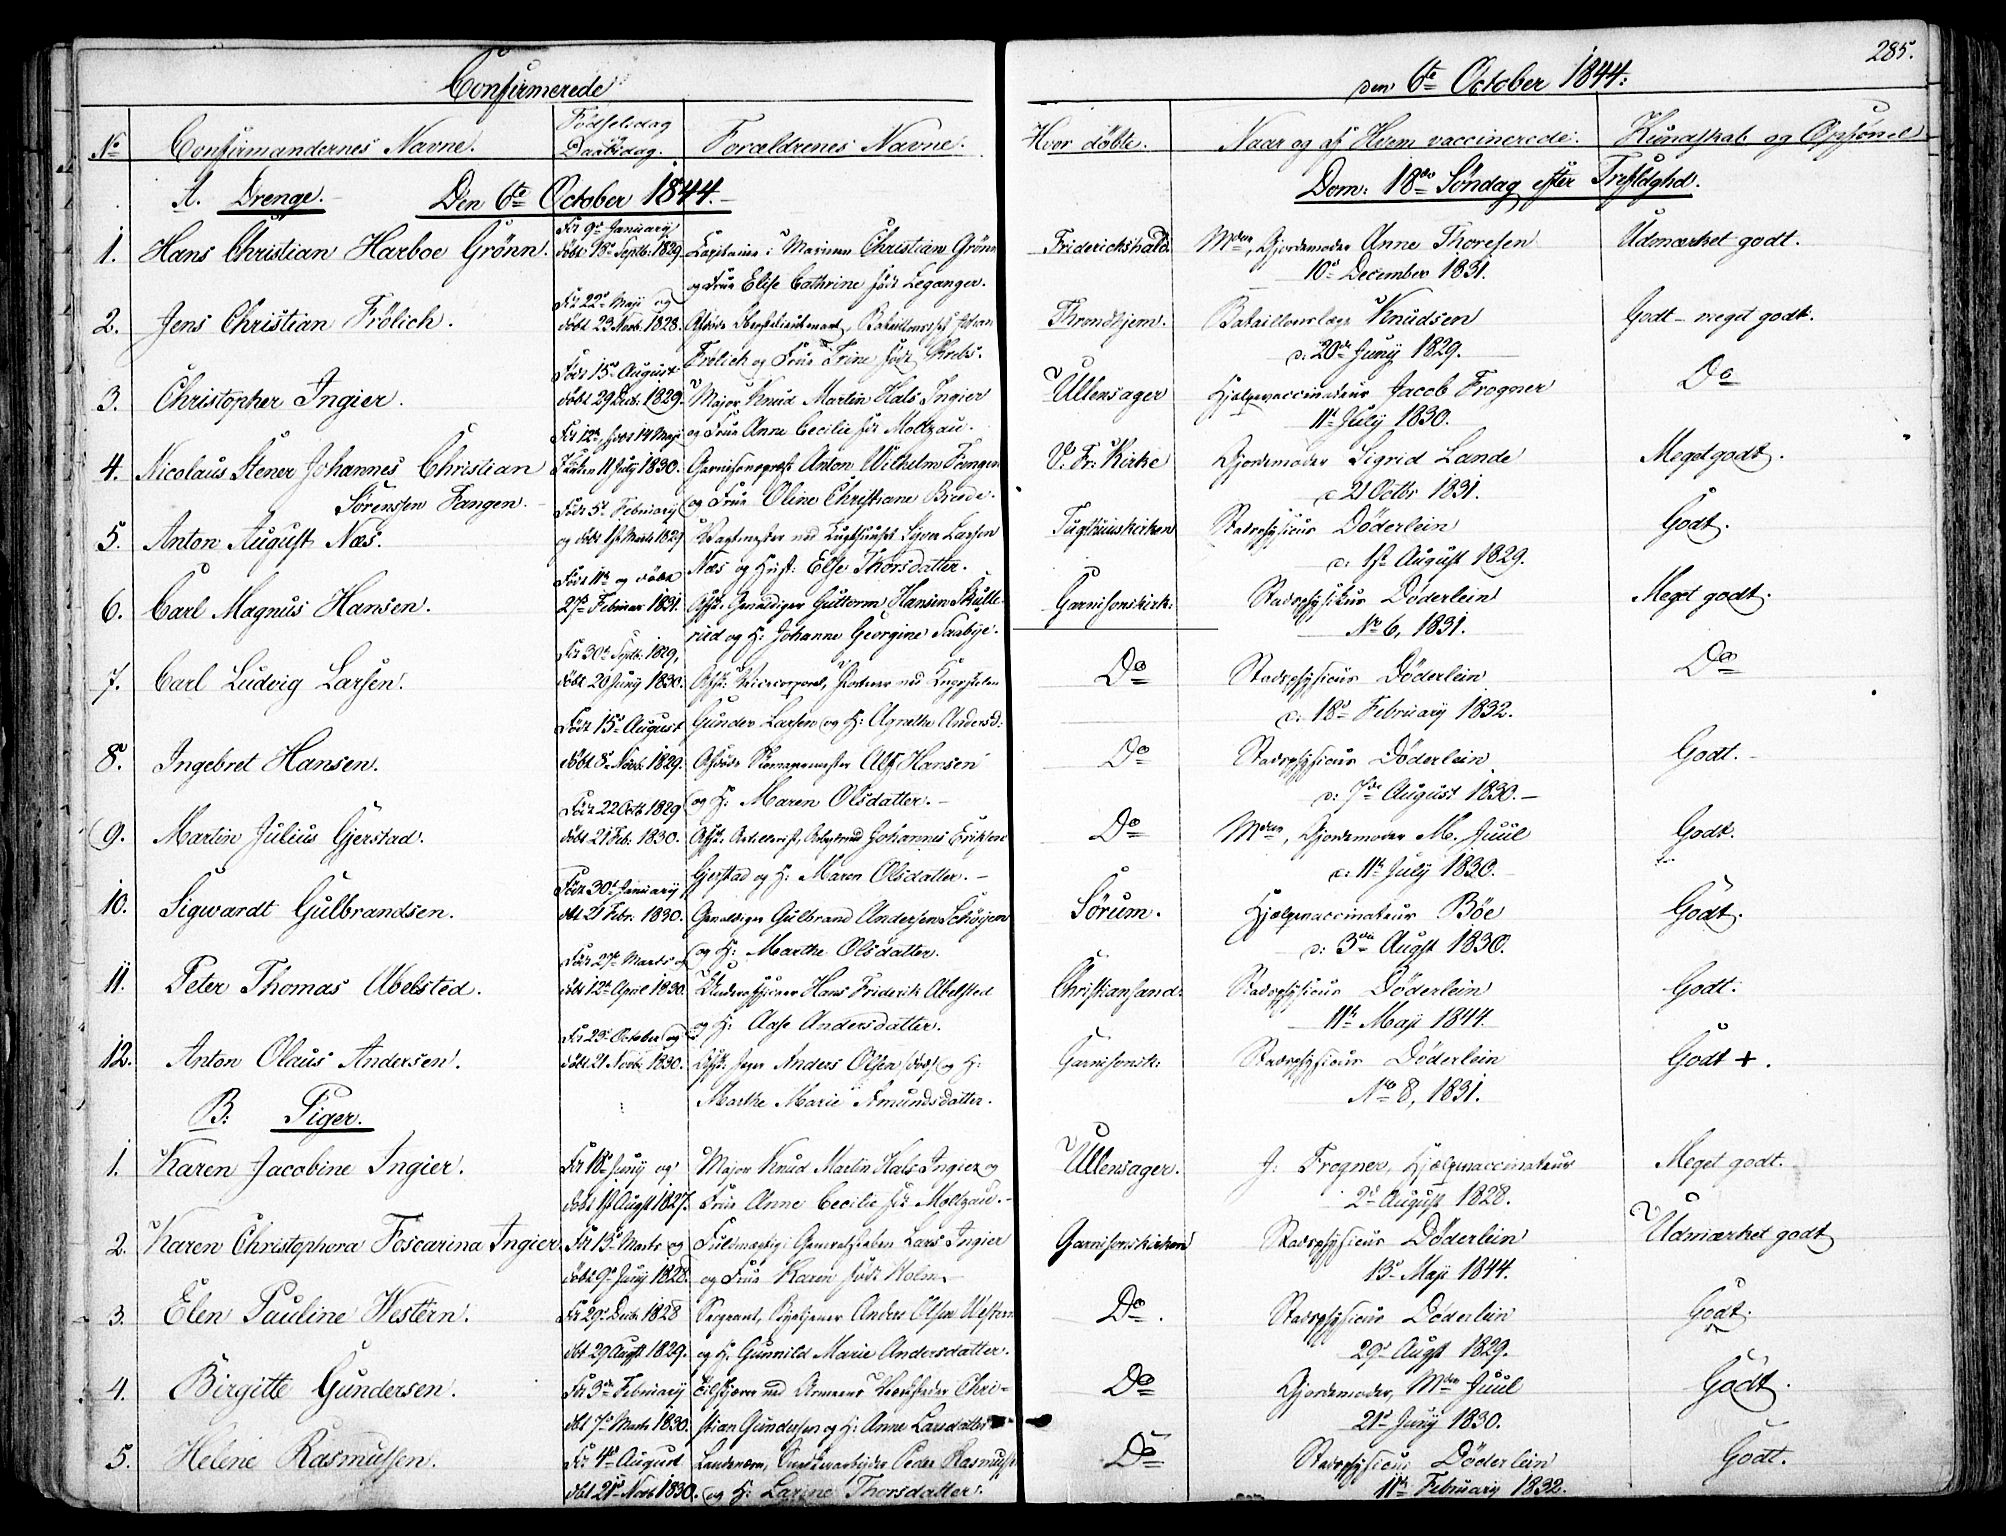 285.
Confirmerede
den 6te October 1844:
No
Confirmandernes Navne.
Födselsdag
Daabsdag.
Forældrenes Navne.
Hvor döbte.
Naar og af Hvem vaccinerede.
Kundskab og Opförsel
A. Drenge. Den 6te October 1844.
Dom: 18de Söndag efter Trefoldghd.
1. Hans Christian Harboe Grönn.
Föd 9de January
döbt 18de Septb: 1829.
Capitaine i Marinen Christian Grönn
og Frue Elise Cathrine föd Leganger.
Friderickshald.
Mdm, Gjordemoder Anne Thoresen
10de December 1831.
Udmærket godt.
2. Jens Christian Frölich.
Föd 22de Maji og
döbt 23 Novb. 1828.
Afdöde Oberstlieutenant, Johan
Frölich og Frue Trine föd Krebs.
Throndhjem.
Bataillonslæge Knudsen
d: 20de Juny 1829.
Godt - meget godt.
3. Christopher Ingier.
Föd 15de August
döbt 29 Decb. 1829.
Major Knud Martin Hals Ingier
og Frue Anne Cecilie föd Moltzau.
Ullensager
Hjælpevaccinateur Jacob Frogner
11te July 1830.
Do
4. Nicolaus Stener Johannes Christian
Sörenssen Fangen.
Föd 12te, 14 Maji
Kirken 11 July 1830.
Garnisonspræst Anton Wilhelm Fangen
og Frue Oline Christiane Brede.
V. Fr: Kirke
Gjordemoder Sigrid Lande
d 21 Octbr 1831.
Meget godt.
5. Anton August Næs.
Födt 5te February
og döbt 1ste Marts 1829
Vagtmester ved Tugthuset Larsen
Næs og Hust: Else Thorsdatter.
Tugthuuskirken
Stadsphysicus Döderlein
d: 1ste August 1829.
Godt.
6. Carl Magnus Hansen.
Födt 11te og döbt
27de Februar 1831.
Afsk. Gevaldiger Guttorm Hansen Skulle
rud og H: Johanne Georgine Saabye.
Garnisonskirk:
Stadsphysikus Döderlein
No 6, 1831.
Meget godt.
7. Carl Ludvig Larsen.
Föd 30te Septb: 1829,
döbt 20 Juny 1830.
Afsk: Vicecorporal, Portner ved Krigsskolen
Gunder Larsen og H: Agnethe Andersd:
Do
Stadsphysicus Döderlein
d: 18de February 1832.
Do
8. Ingebret Hansen.
Födt 15de August
döbt 8de Novb. 1829.
Afdöde Skomagermester Alf Hansen
og H: Maren Olsdatter.
Do
Stadsphysicus Döderlein
d: 7de August 1830.
Godt.
9. Martin Julius Gjerstad.
Födt 22 Octb 1829
döbt 21 Feb: 1830.
Afsk. Artillerist, Johannes Eriksen
Gjerstad og H: Maren Olsdatter.
Do
Mdm, Gjordemoder M. Juul
d: 11te July 1830.
Godt.
10. Sigwardt Gulbrandsen.
Födt 30te January
döbt 21 Febr: 1830.
Gevaldiger Gulbrand Andersen Schöyen
og H: Marthe Olsdatter.
Sörum.
Hjælpevaccinateur Böe
d: 3die Augst 1830.
Godt.
11. Peter Thomas Abelsted.
Födt 27de Marts og
döbt 12te April 1830.
Underofficeer Hans Friderik Abelsted
og H: Aase Andersdatter.
Christiansand:
Stadsphysicus Döderlein
11te Maji 1844.
Godt.
12. Anton Olaus Andersen.
Föd 23de October og
döbt 21 Novb: 1830.
Afsk: Jæger Anders Olsen og H:
Marthe Marie Amundsdatter.
Garnisonsk:
Stadsphysicus Döderlein
No 8, 1831.
Godt +.
B. Piger.
1. Karen Jacobine Ingier.
Föd 18de Juny og
döbt 1ste Augst 1827.
Major Knud Martin Hals Ingier og
Frue Anne Cecilie föd Moltzau.
Ullensager.
J: Frogner, Hjælpevaccinateur
2de August 1828.
Meget godt.
2. Karen Christophora Foscarina Ingier
Föd 13de Marts og
döbt 9de Juny 1828.
Fuldmægtig i Generalstaben Lars Ingier
og Frue Karen födt Holm
Garnisonskirken
Stadsphysicus Döderlein
13de Maji 1844.
Udmærket godt
3. Elen Pauline Western.
Föd 29de Decb: 1828
döbt 29 Augst 1829.
Sergeant, Anders Olsen Western
og H. Gunnild Marie Andersdatter.
Do.
Stadsphysicus Döderlein
29de Augst 1829.
Godt.
4. Birgitte Gundersen.
Föd 3die February
döbt 7de Marts 1830.
ved Armeens Chri=
stian Gundersen og H: Anne Larsdatter
Do
Gjordemoder, Mdm Juul
21de Juny 1830.
Godt.
5. Helene Rasmussen.
Föd 4de August
döbt 21de Novb 1830.
Peder Rasmuss:
og H: Larine Thorsdatter.
Do
Stadsphysicus Döderlein
11te February 1832.
Godt.